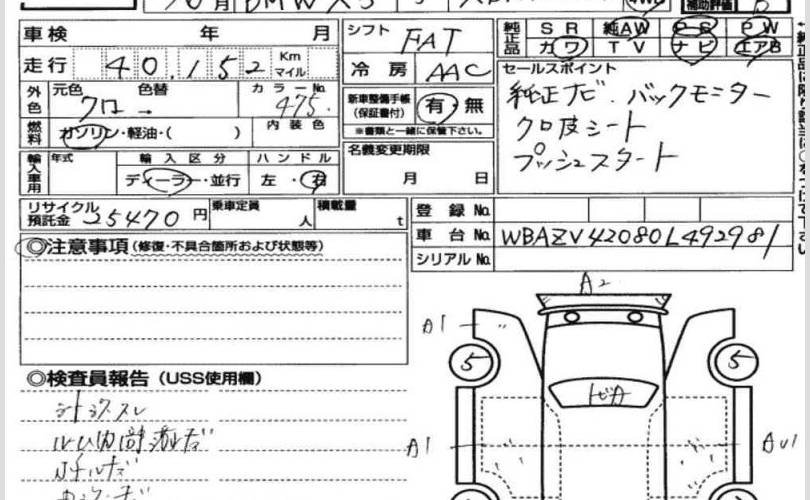 10月 BMW X5
車検 年 月 シフト FAT 純正品 SR 純AW PS PW
カワ TV ナビ エアB
走行 40,152 Km マイル 冷房 AAC セールスポイント
純正ナビ.バックモニター
クロ皮シート
プッシュスタート
外色 元色 色替 カラーNo.
クロ → 475
新車整備手帳 (保証書付) 有・無
※書類と一緒に保管下さい。
燃料 ガソリン・軽油・( ) 内装色
名義変更期限
月 日
輸入車用 年式 輸入区分 ハンドル
ディーラー・並行 左・右
リサイクル預託金 25470円 乗車定員 人 積載量 t
登録No.
車台No. WBAZV42080L492981
シリアルNo.
◎注意事項 (修復・不具合箇所および状態等)
◎検査員報告 (USS使用欄)
シートシワスレ
A2
A1
5 5
トビA
A1 AU1